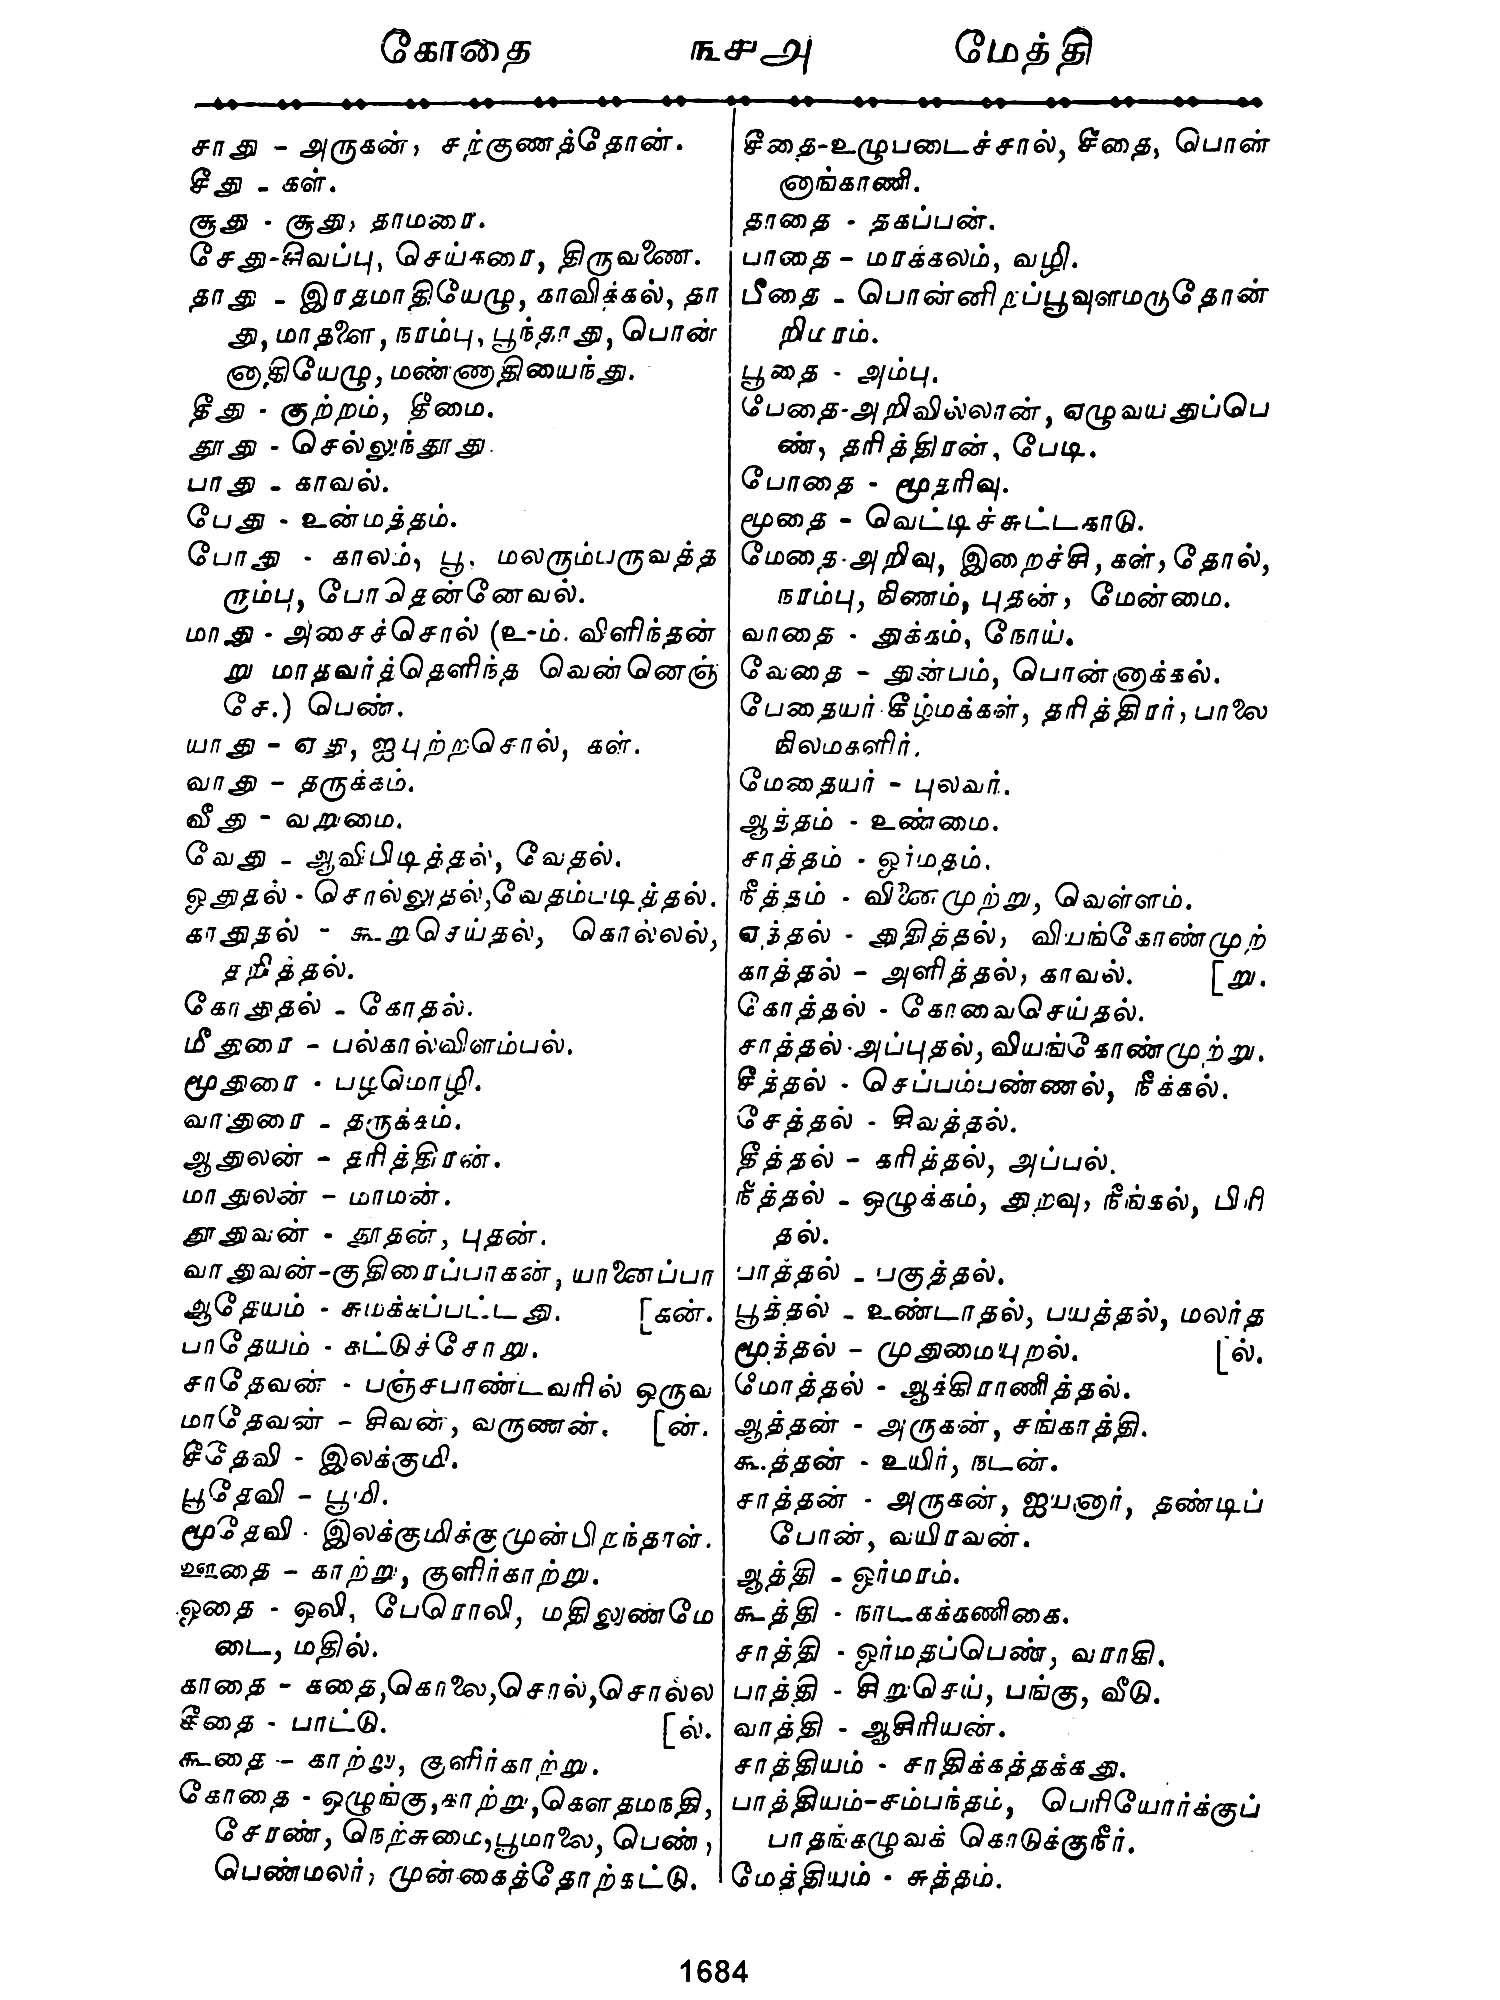 கோதை ௩௪௮ மேத்தி
சாது - அருகன், சற்குணத்தோன்.
சீது - கள்.
சூது - சூது, தாமரை.
சேது-சிவப்பு, செய்கரை, திருவணை.
தாது - இரதமாதியேழு, காவிக்கல், தா
து, மாதளை, நரம்பு, பூந்தாது, பொன்
னாதியேழு, மண்ணாதியைந்து.
தீது - குற்றம், தீமை.
தூது - செல்லுந்தூது.
பாது - காவல்.
பேது - உன்மத்தம்.
போது - காலம், பூ, மலரும்பருவத்த
ரும்பு, போதென்னேவல்.
மாது - அசைச்சொல் (உ-ம். விளிந்தன்
று மாதவர்த்தெளிந்த வென்னெஞ்
சே.) பெண்.
யாது - ஏது, ஐபுற்றசொல், கள்.
வாது - தருக்கம்.
வீது - வறுமை.
வேது - ஆவிபிடித்தல், வேதல்.
ஓதுதல் - சொல்லுதல்,வேதம்படித்தல்.
காதுதல் - கூறுசெய்தல், கொல்லல்,
தறித்தல்.
கோதுதல் - கோதல்.
மீதுரை - பல்கால்விளம்பல்.
மூதுரை - பழமொழி.
வாதுரை - தருக்கம்.
ஆதுலன் - தரித்திரன்.
மாதுலன் - மாமன்.
தூதுவன் - தூதன், புதன்.
வாதுவன்-குதிரைப்பாகன், யானைப்பா
ஆதேயம் - சுமக்கப்பட்டது. [கன்.
பாதேயம் - கட்டுச்சோறு.
சாதேவன் - பஞ்சபாண்டவரில் ஒருவ
மாதேவன் - சிவன், வருணன். [ன்.
சீதேவி - இலக்குமி.
பூதேவி - பூமி.
மூதேவி - இலக்குமிக்குமுன்பிறந்தாள்.
ஊதை - காற்று, குளிர்காற்று.
ஓதை - ஒலி, பேரொலி, மதிலுண்மே
டை, மதில்.
காதை - கதை,கொலை,சொல்,சொல்ல
கீதை - பாட்டு. [ல்.
கூதை - காற்று, குளிர்காற்று.
கோதை - ஒழுங்கு,காற்று,கௌதமநதி,
சேரண், நெற்சுமை,பூமாலை, பெண்,
பெண்மலர், முன்கைத்தோற்கட்டு.
சீதை-உழுபடைச்சால், சீதை, பொன்
னாங்காணி.
தாதை - தகப்பன்.
பாதை - மரக்கலம், வழி.
பீதை - பொன்னிறப்பூவுளமருதோன்
றிமரம்.
பூதை - அம்பு.
பேதை-அறிவில்லான், ஏழுவயதுப்பெ
ண், தரித்திரன், பேடி.
போதை - மூதரிவு.
மூதை - வெட்டிச்சுட்டகாடு.
மேதை-அறிவு, இறைச்சி,கள்,தோல்,
நரம்பு, நிணம், புதன், மேன்மை.
வாதை - துக்கம், நோய்.
வேதை - துன்பம், பொன்னாக்கல்.
பேதையர்-கீழ்மக்கள், தரித்திரர், பாலை
நிலமகளிர்.
மேதையர் - புலவர்.
ஆத்தம் - உண்மை.
சாத்தம் - ஓர்மதம்.
நீத்தம் - வினைமுற்று, வெள்ளம்.
ஏத்தல் - துதித்தல், வியங்கோண்முற்
காத்தல் - அளித்தல், காவல். [று.
கோத்தல் - கோவைசெய்தல்.
சாத்தல்-அப்புதல், வியங்கோண்முற்று.
சீத்தல் - செப்பம்பண்ணல், நீக்கல்.
சேத்தல் - சிவத்தல்.
தீத்தல் - கரித்தல், அப்பல்.
நீத்தல் - ஒழுக்கம், துறவு, நீங்கல், பிரி
தல்.
பாத்தல் - பகுத்தல்.
பூத்தல் - உண்டாதல், பயத்தல், மலர்த
மூத்தல் - முதுமையுறல். [ல்.
மோத்தல் - ஆக்கிராணித்தல்.
ஆத்தன் - அருகன், சங்காத்தி.
கூத்தன் - உயிர், நடன்.
சாத்தன் - அருகன், ஐயனார், தண்டிப்
போன், வயிரவன்.
ஆத்தி - ஓர்மரம்.
கூத்தி - நாடகக்கணிகை.
சாத்தி - ஓர்மதப்பெண், வராகி.
பாத்தி - சிறுசெய், பங்கு, வீடு.
வாத்தி - ஆசிரியன்.
சாத்தியம் - சாதிக்கத்தக்கது.
பாத்தியம்-சம்பந்தம், பெரியோர்க்குப்
பாதங்கழுவக் கொடுக்குநீர்.
மேத்தியம் - சுத்தம்.
1684